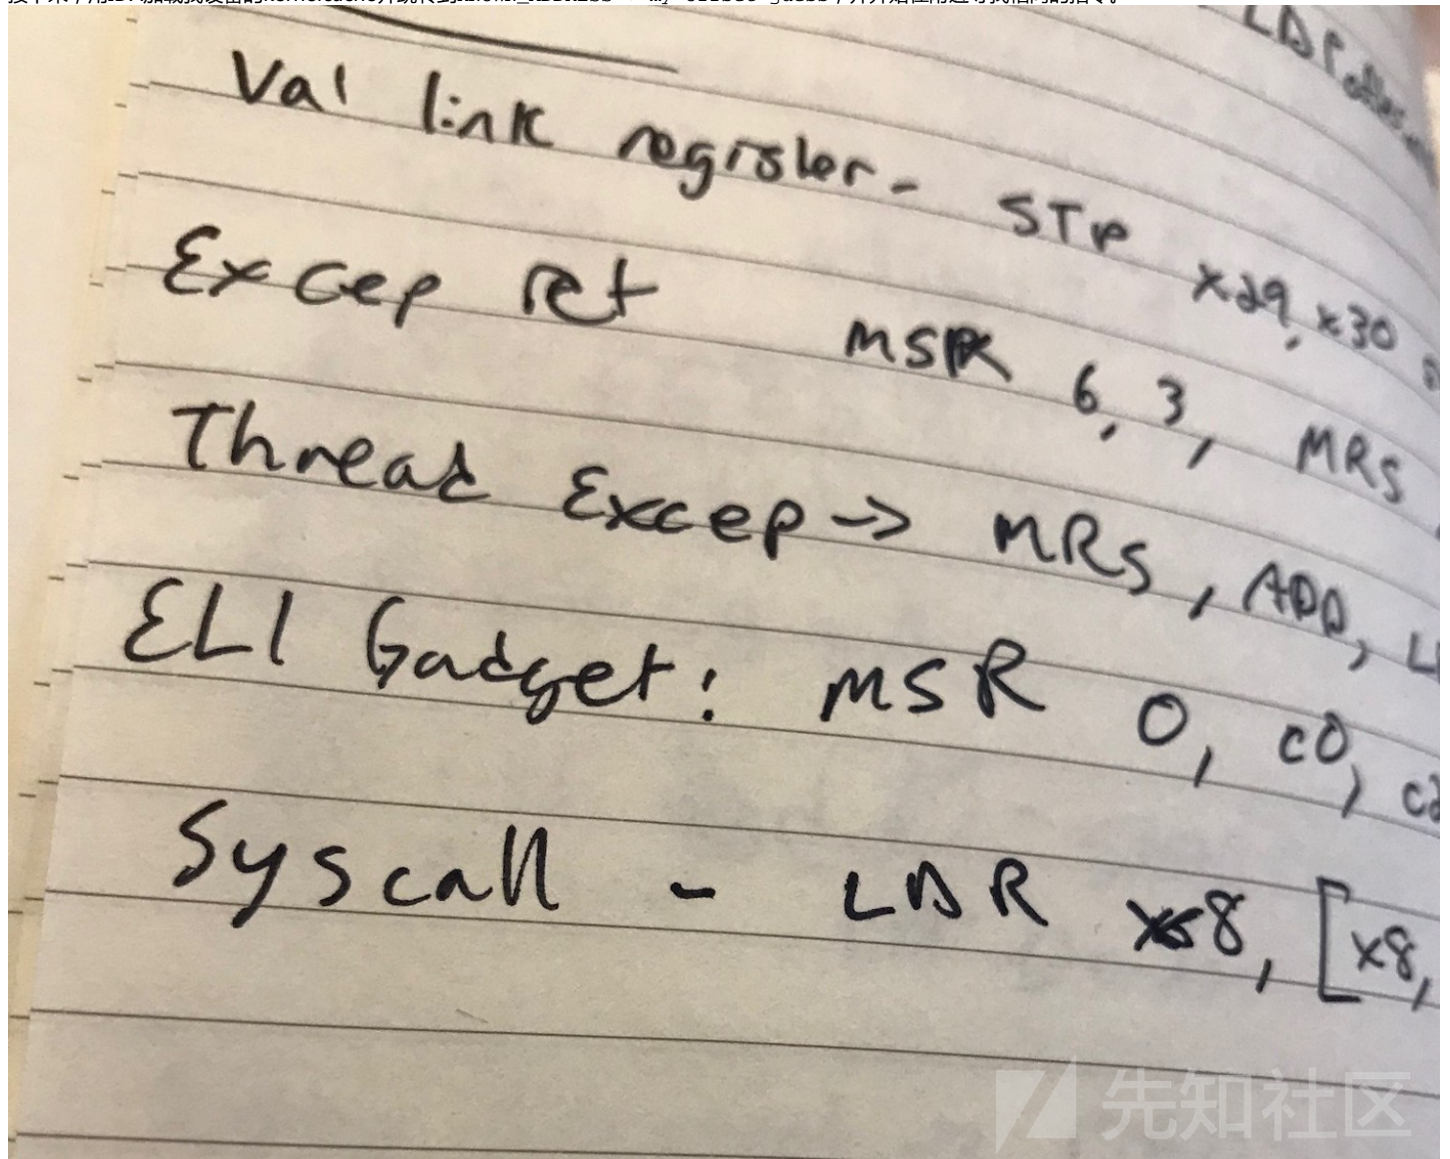 Val link register - STP x29, x30
Excep ret MSR 6, 3, MRS
Thread Excep -> MRS, ADD, L
EL1 Gadget: MSR 0, c0, c2
Syscall - LDR x8, [x8,
先知社区